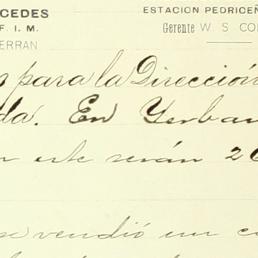 CEDES ESTACION PEDRICEÑ
F. I. M. Gerente W. S. CO
ERRAN
para la Dirección
da. En Yerban
este serán 26
se vendió un c